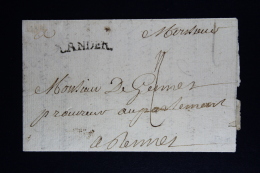 LANDER
Monsieur
Monsieur De Gennes
procureur au parlement
a Rennes